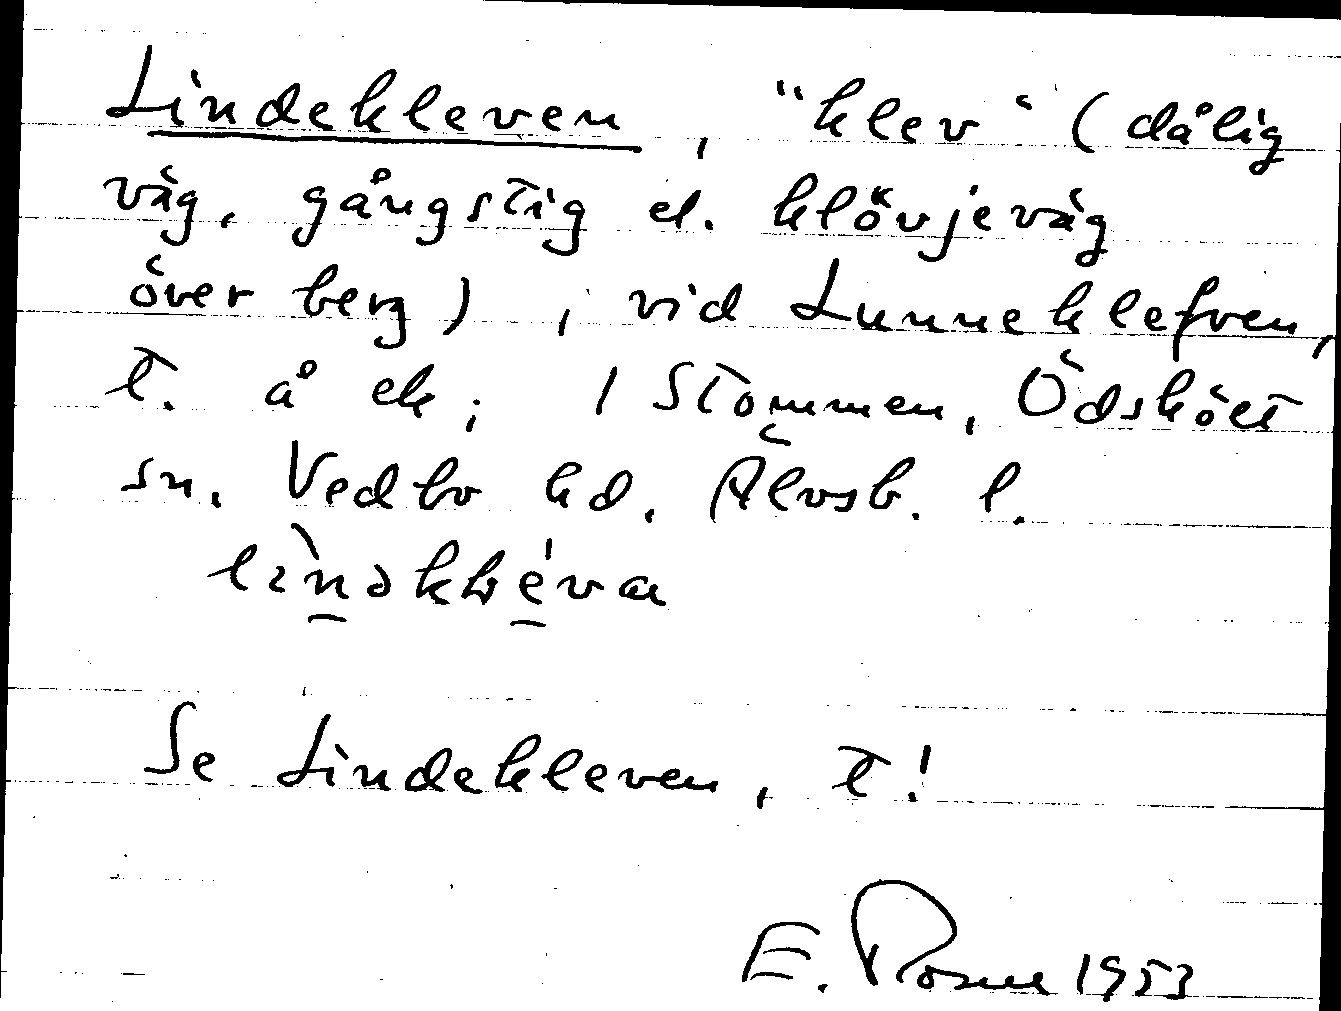 Lindekleven, "klev" (dålig
väg, gångstig el. klövjeväg
över berg), vid Lunneklefven,
t. å ek; 1 Stommen, Ödskölt
sn. Vedbo hd. Älvsb. l.
Se Lindekleven, t!
E. Rosell 1953